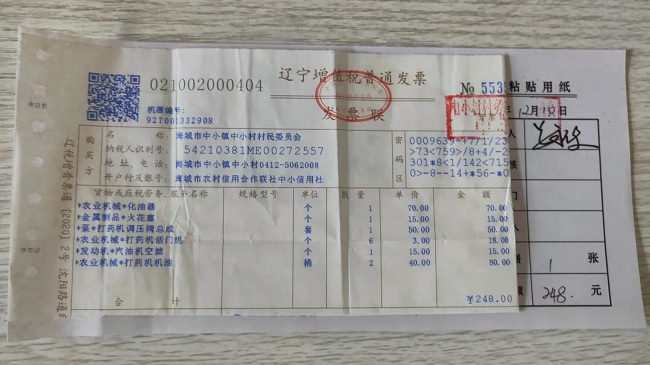 021002000404
辽宁增值税普通发票
№ 553
粘贴用纸
发票联
12月
机器编号:
927001332908
购买方
名称:海城市中小镇中小村村民委员会
纳税人识别号:54210381ME00272557
地址、电话:海城市中小镇中小村0412-5062008
开户行及账号:海城市农村信用合作联社中小信用社
密码区
0009639-+7/1/23
>73<759>/8+4/-2
301*8<1/142<715
0>-8--14+*56-*0
货物或应税劳务、服务名称 规格型号 单位 数量 单价 金额
*农业机械*化油器 个 1 70.00 70.00
*金属制品*火花塞 个 1 15.00 15.00
*泵*打药机调压阀总成 套 1 50.00 50.00
*农业机械*打药机活门组 个 6 3.00 18.00
*发动机*汽油机空滤 个 1 15.00 15.00
*农业机械*打药机机油 桶 2 40.00 80.00
合计 ¥248.00
人
1 张
额 248. 元
辽税普票通[2020]2号沈阳